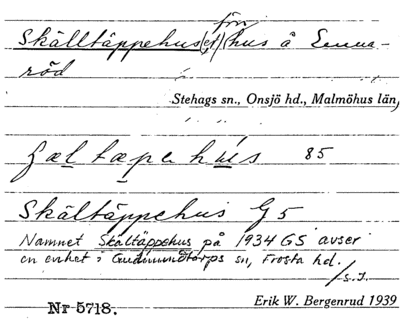 för
Skälltäppehus(et) (hus å Emma-
röd
Stehags sn., Onsjö hd., Malmöhus län,
hæl tæpe hus 85
Skältäppehus G5
Namnet Skältäppehus på 1934 GS avser
en enhet i Gudmundtorps sn, Frosta hd.
/S.I.
Nr 5718. Erik W. Bergenrud 1939